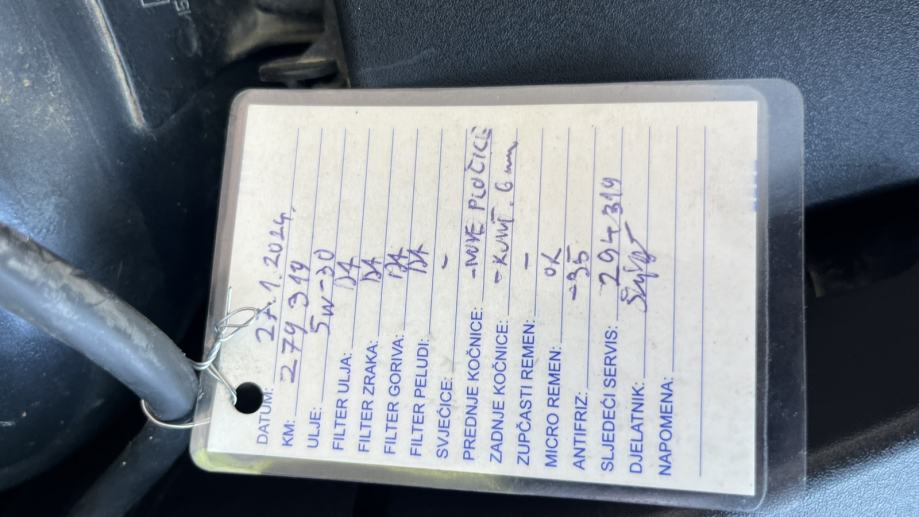 DATUM: 27.1.2024.
KM: 279 319
ULJE: 5W-30
FILTER ULJA: DA
FILTER ZRAKA: DA
FILTER GORIVA: DA
FILTER PELUDI: DA
SVJEĆICE: -
PREDNJE KOČNICE: - NOVE PLOČICE
ZADNJE KOČNICE: 6 mm
ZUPČASTI REMEN: -
MICRO REMEN: OK
ANTIFRIZ: -35
SLJEDEĆI SERVIS: 294 319
DJELATNIK:
NAPOMENA: